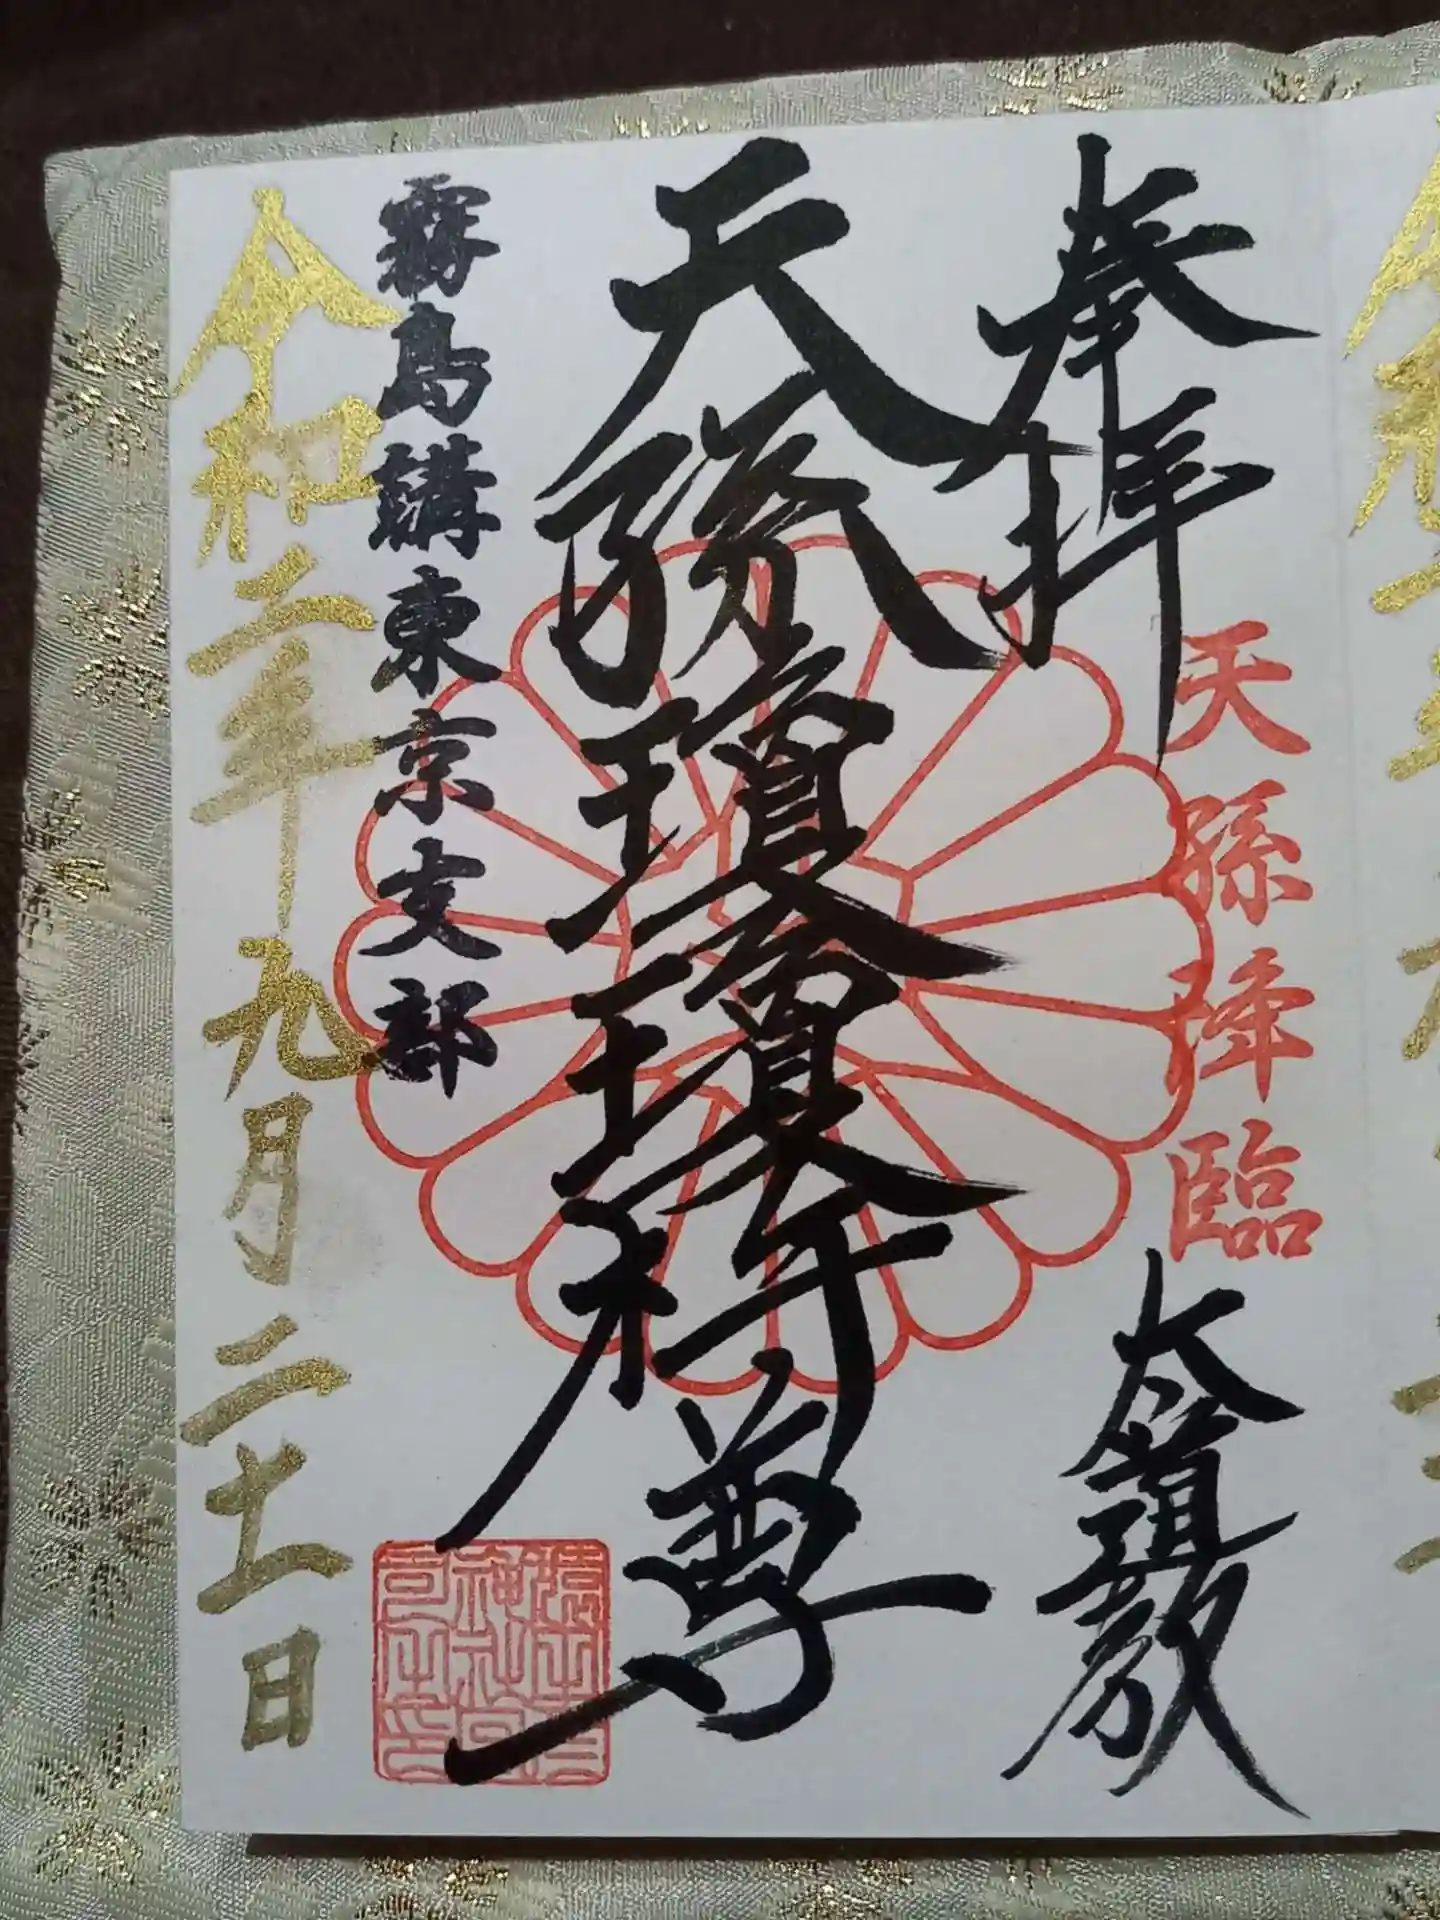 奉拝
天孫降臨
天孫瓊瓊杵尊
霧島講東京支部
令和二年九月二十一日